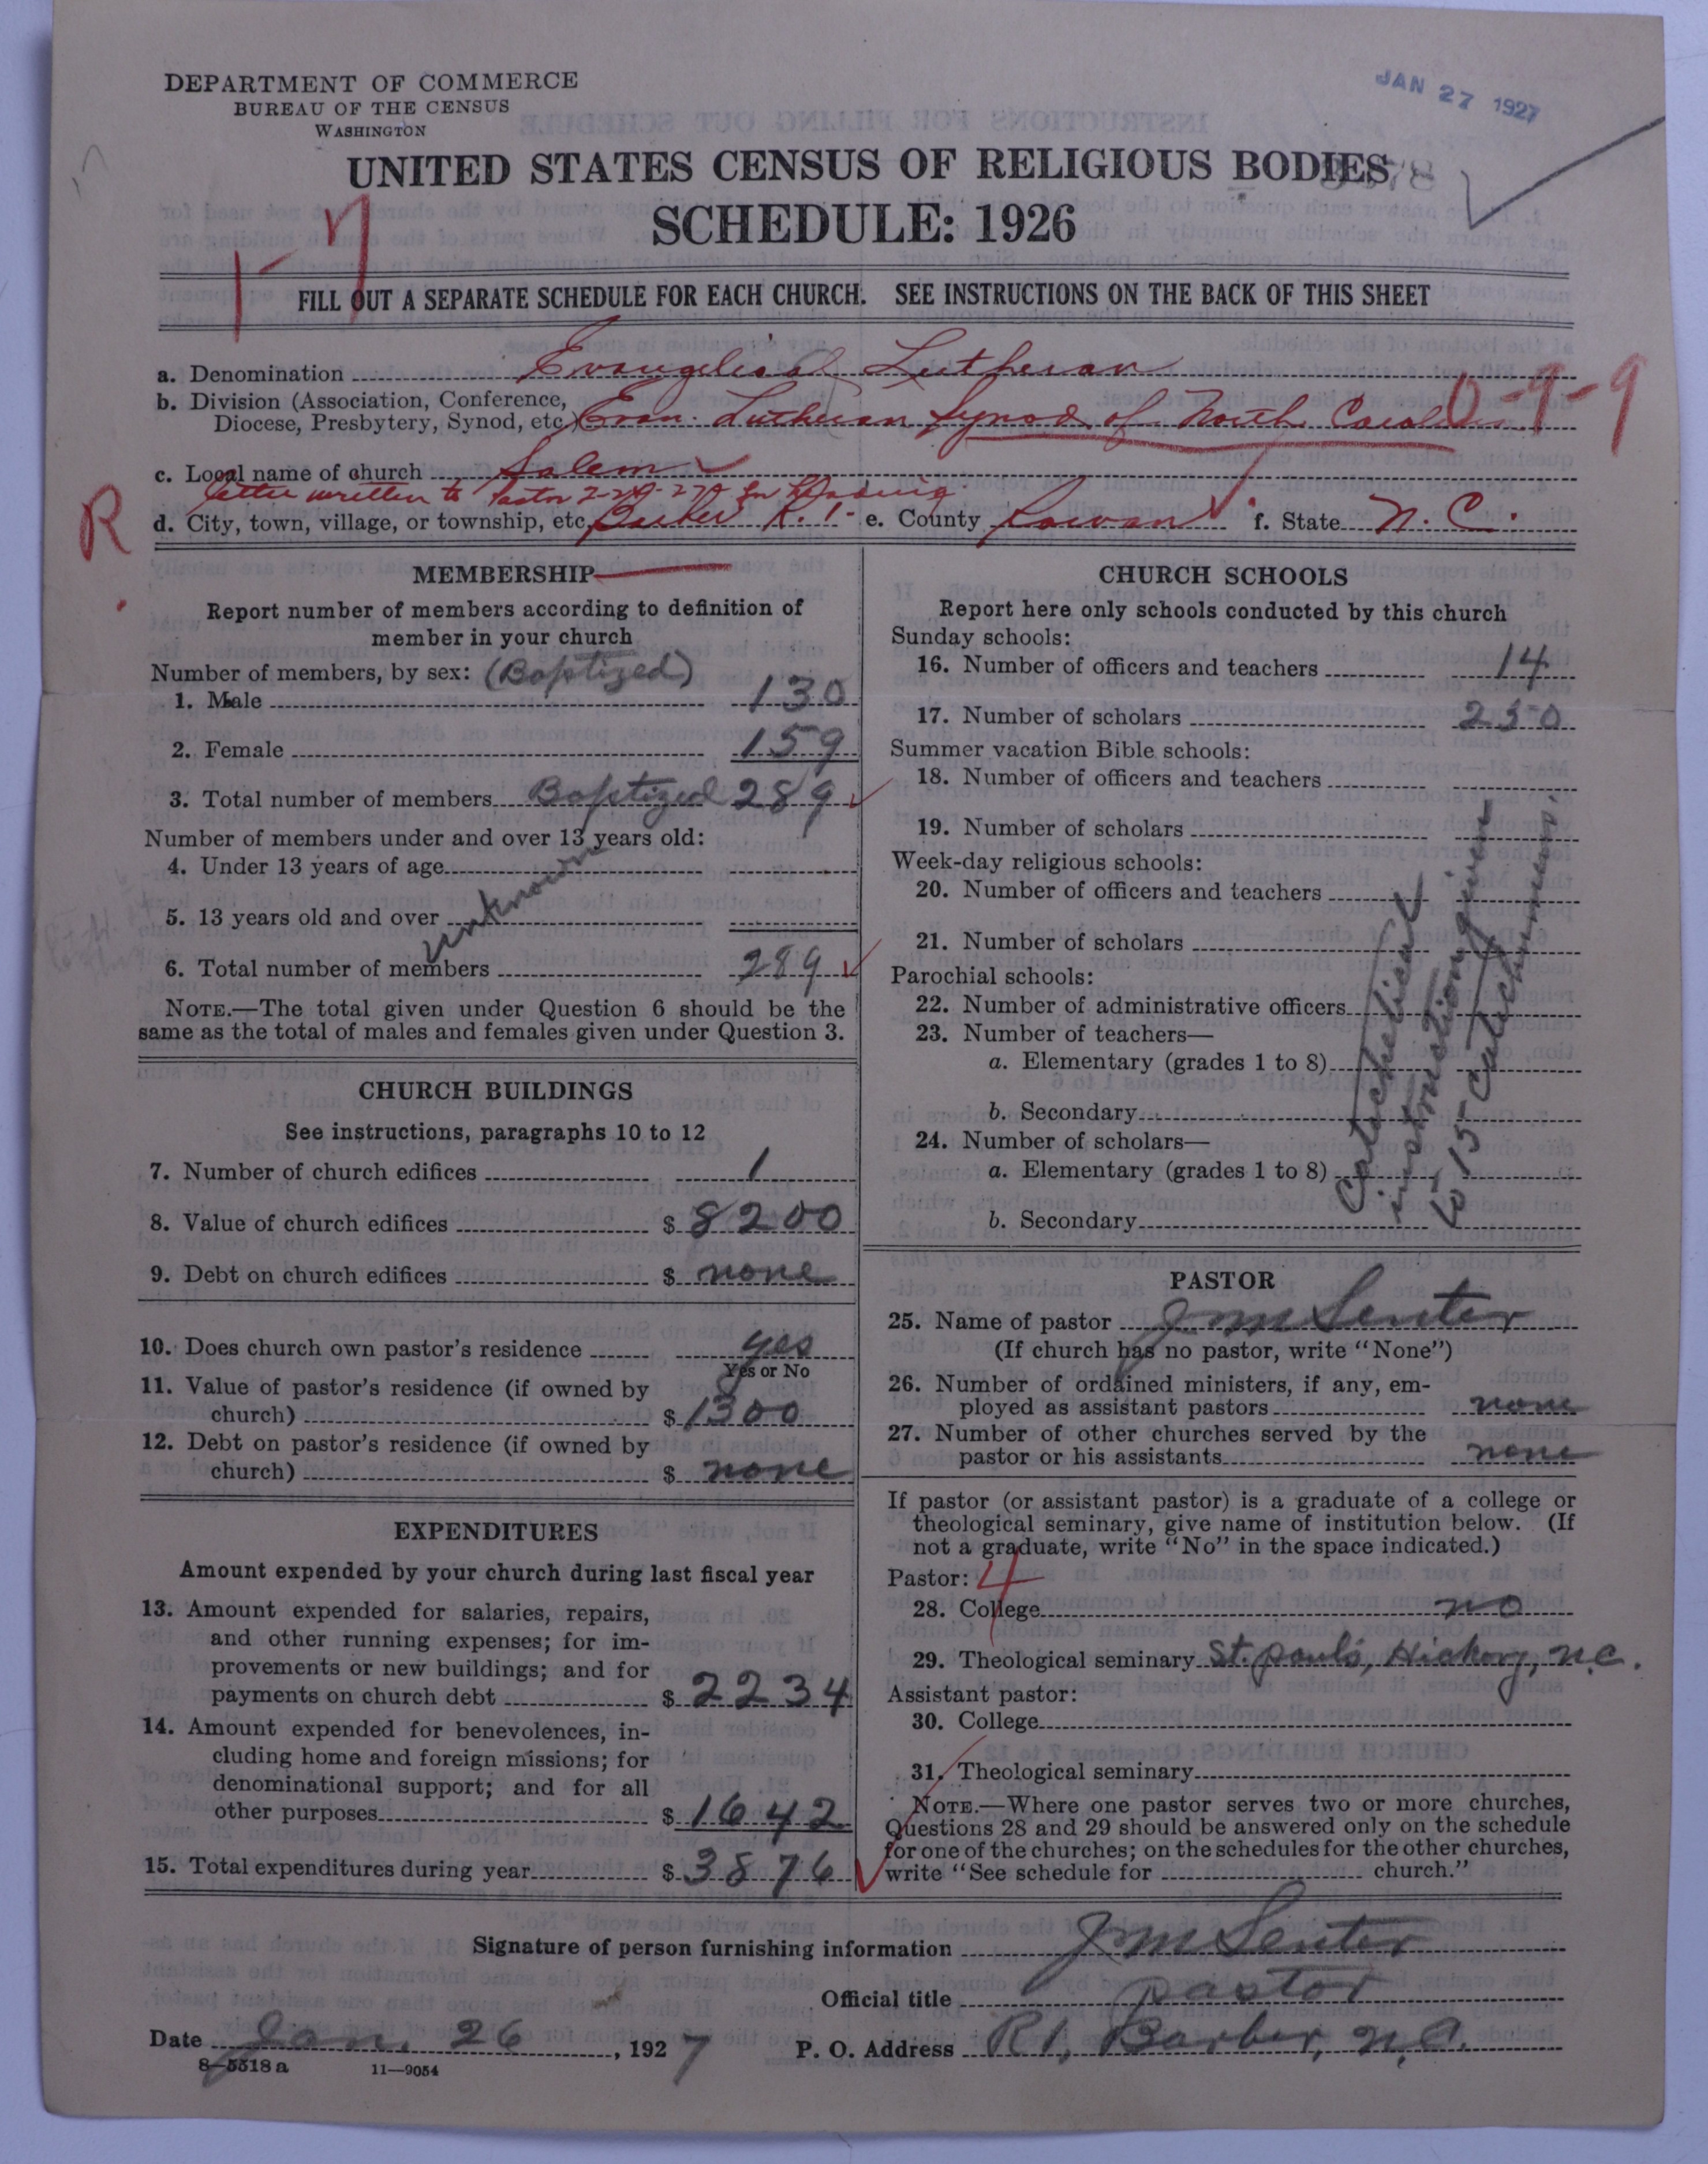 DEPARTMENT OF COMMERCE
BUREAU OF THE CENSUS
WASHINGTON
JAN 27 1927
UNITED STATES CENSUS OF RELIGIOUS BODIES
SCHEDULE: 1926
FILL OUT A SEPARATE SCHEDULE FOR EACH CHURCH. SEE INSTRUCTIONS ON THE BACK OF THIS SHEET
a. Denomination Evangelical Lutheran
b. Division (Association, Conference,
Diocese, Presbytery, Synod, etc.) Evan. Lutheran Synod of North Carolina 0-9-9
c. Local name of church Salem
letter written to Pastor
R d. City, town, village, or township, etc. Barber R. 1. e. County Rowan f. State N. C.
MEMBERSHIP
Report number of members according to definition of
member in your church
Number of members, by sex: (Baptized)
1. Male 130
2. Female 159
3. Total number of members Baptized 289
Number of members under and over 13 years old:
4. Under 13 years of age
unknown
5. 13 years old and over
6. Total number of members 289
NOTE.—The total given under Question 6 should be the
same as the total of males and females given under Question 3.
CHURCH BUILDINGS
See instructions, paragraphs 10 to 12
7. Number of church edifices 1
8. Value of church edifices $ 8200
9. Debt on church edifices $ none
10. Does church own pastor's residence yes
Yes or No
11. Value of pastor's residence (if owned by
church) $ 1300
12. Debt on pastor's residence (if owned by
church) $ none
EXPENDITURES
Amount expended by your church during last fiscal year
13. Amount expended for salaries, repairs,
and other running expenses; for im-
provements or new buildings; and for
payments on church debt $ 2234
14. Amount expended for benevolences, in-
cluding home and foreign missions; for
denominational support; and for all
other purposes $ 1642
15. Total expenditures during year $ 3876
CHURCH SCHOOLS
Report here only schools conducted by this church
Sunday schools:
16. Number of officers and teachers 14
17. Number of scholars 250
Summer vacation Bible schools:
18. Number of officers and teachers
19. Number of scholars
Week-day religious schools:
20. Number of officers and teachers
21. Number of scholars
Parochial schools:
22. Number of administrative officers
23. Number of teachers—
a. Elementary (grades 1 to 8)
b. Secondary
24. Number of scholars—
a. Elementary (grades 1 to 8)
b. Secondary
Catechetical
instruction given
to 15 catechumens.
PASTOR
25. Name of pastor J M Senter
(If church has no pastor, write "None")
26. Number of ordained ministers, if any, em-
ployed as assistant pastors none
27. Number of other churches served by the
pastor or his assistants none
If pastor (or assistant pastor) is a graduate of a college or
theological seminary, give name of institution below. (If
not a graduate, write "No" in the space indicated.)
Pastor: 4
28. College no
29. Theological seminary St. Paul's, Hickory, N.C.
Assistant pastor:
30. College
31. Theological seminary
NOTE.—Where one pastor serves two or more churches,
Questions 28 and 29 should be answered only on the schedule
for one of the churches; on the schedules for the other churches,
write "See schedule for church."
Signature of person furnishing information J M Senter
Official title pastor
Date Jan. 26, 1927 P. O. Address R 1, Barber, N.C.
8-5518 a 11—9054